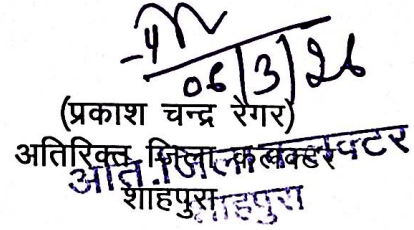 06/3/26
(प्रकाश चन्द्र रेगर)
अतिरिक्त जिला कलक्टर
अति. जिला कलक्टर
शाहपुरा
शाहपुरा